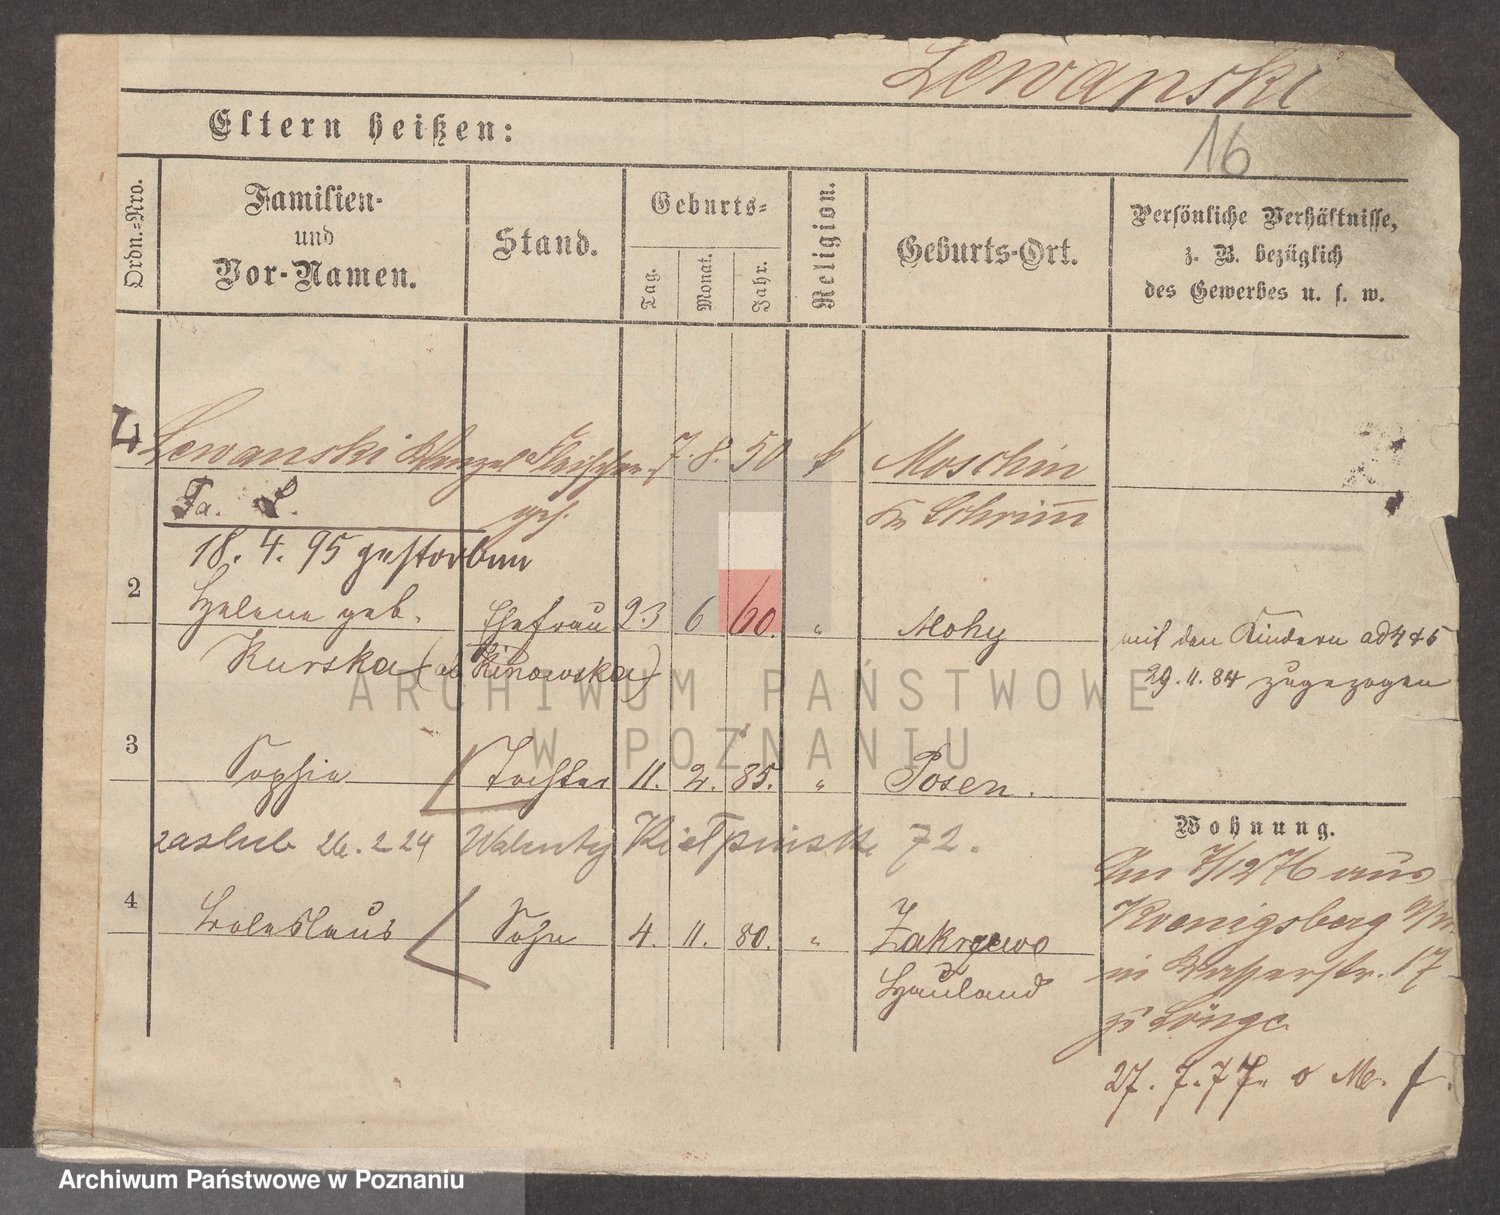 Lewanski
16
Eltern heißen:
Ordn.-Nro.
Familien-
und
Vor-Namen.
Stand.
Geburts-
Tag.
Monat.
Jahr.
Religion.
Geburts-Ort.
Persönliche Verhältnisse,
z. B. bezüglich
des Gewerbes u. s. w.
Lewanski Wenzel Fleischer 7. 8. 50 Moschin
Fa. L. ges. Schrimm
18. 4. 95 gestorben
2 Helena geb. Ehefrau 23 6 60. " Mohy mit den Kindern ad 4 & 5
Kurska ( Kinowska) 29. 11. 84 zugezogen
3 Sophie Tochter 11. 2. 85. " Posen.
zaslub 26. 2 24 Walenty Kiełpinski 72.
Wohnung.
4 Boleslaus Sohn 4. 11. 80. " Zakrzewo
Hauland
Am 7/12 76 aus
Koenigsberg
in Wasserstr. 17
zu
27. 7. 77.
ARCHIWUM PAŃSTWOWE
W POZNANIU
Archiwum Państwowe w Poznaniu